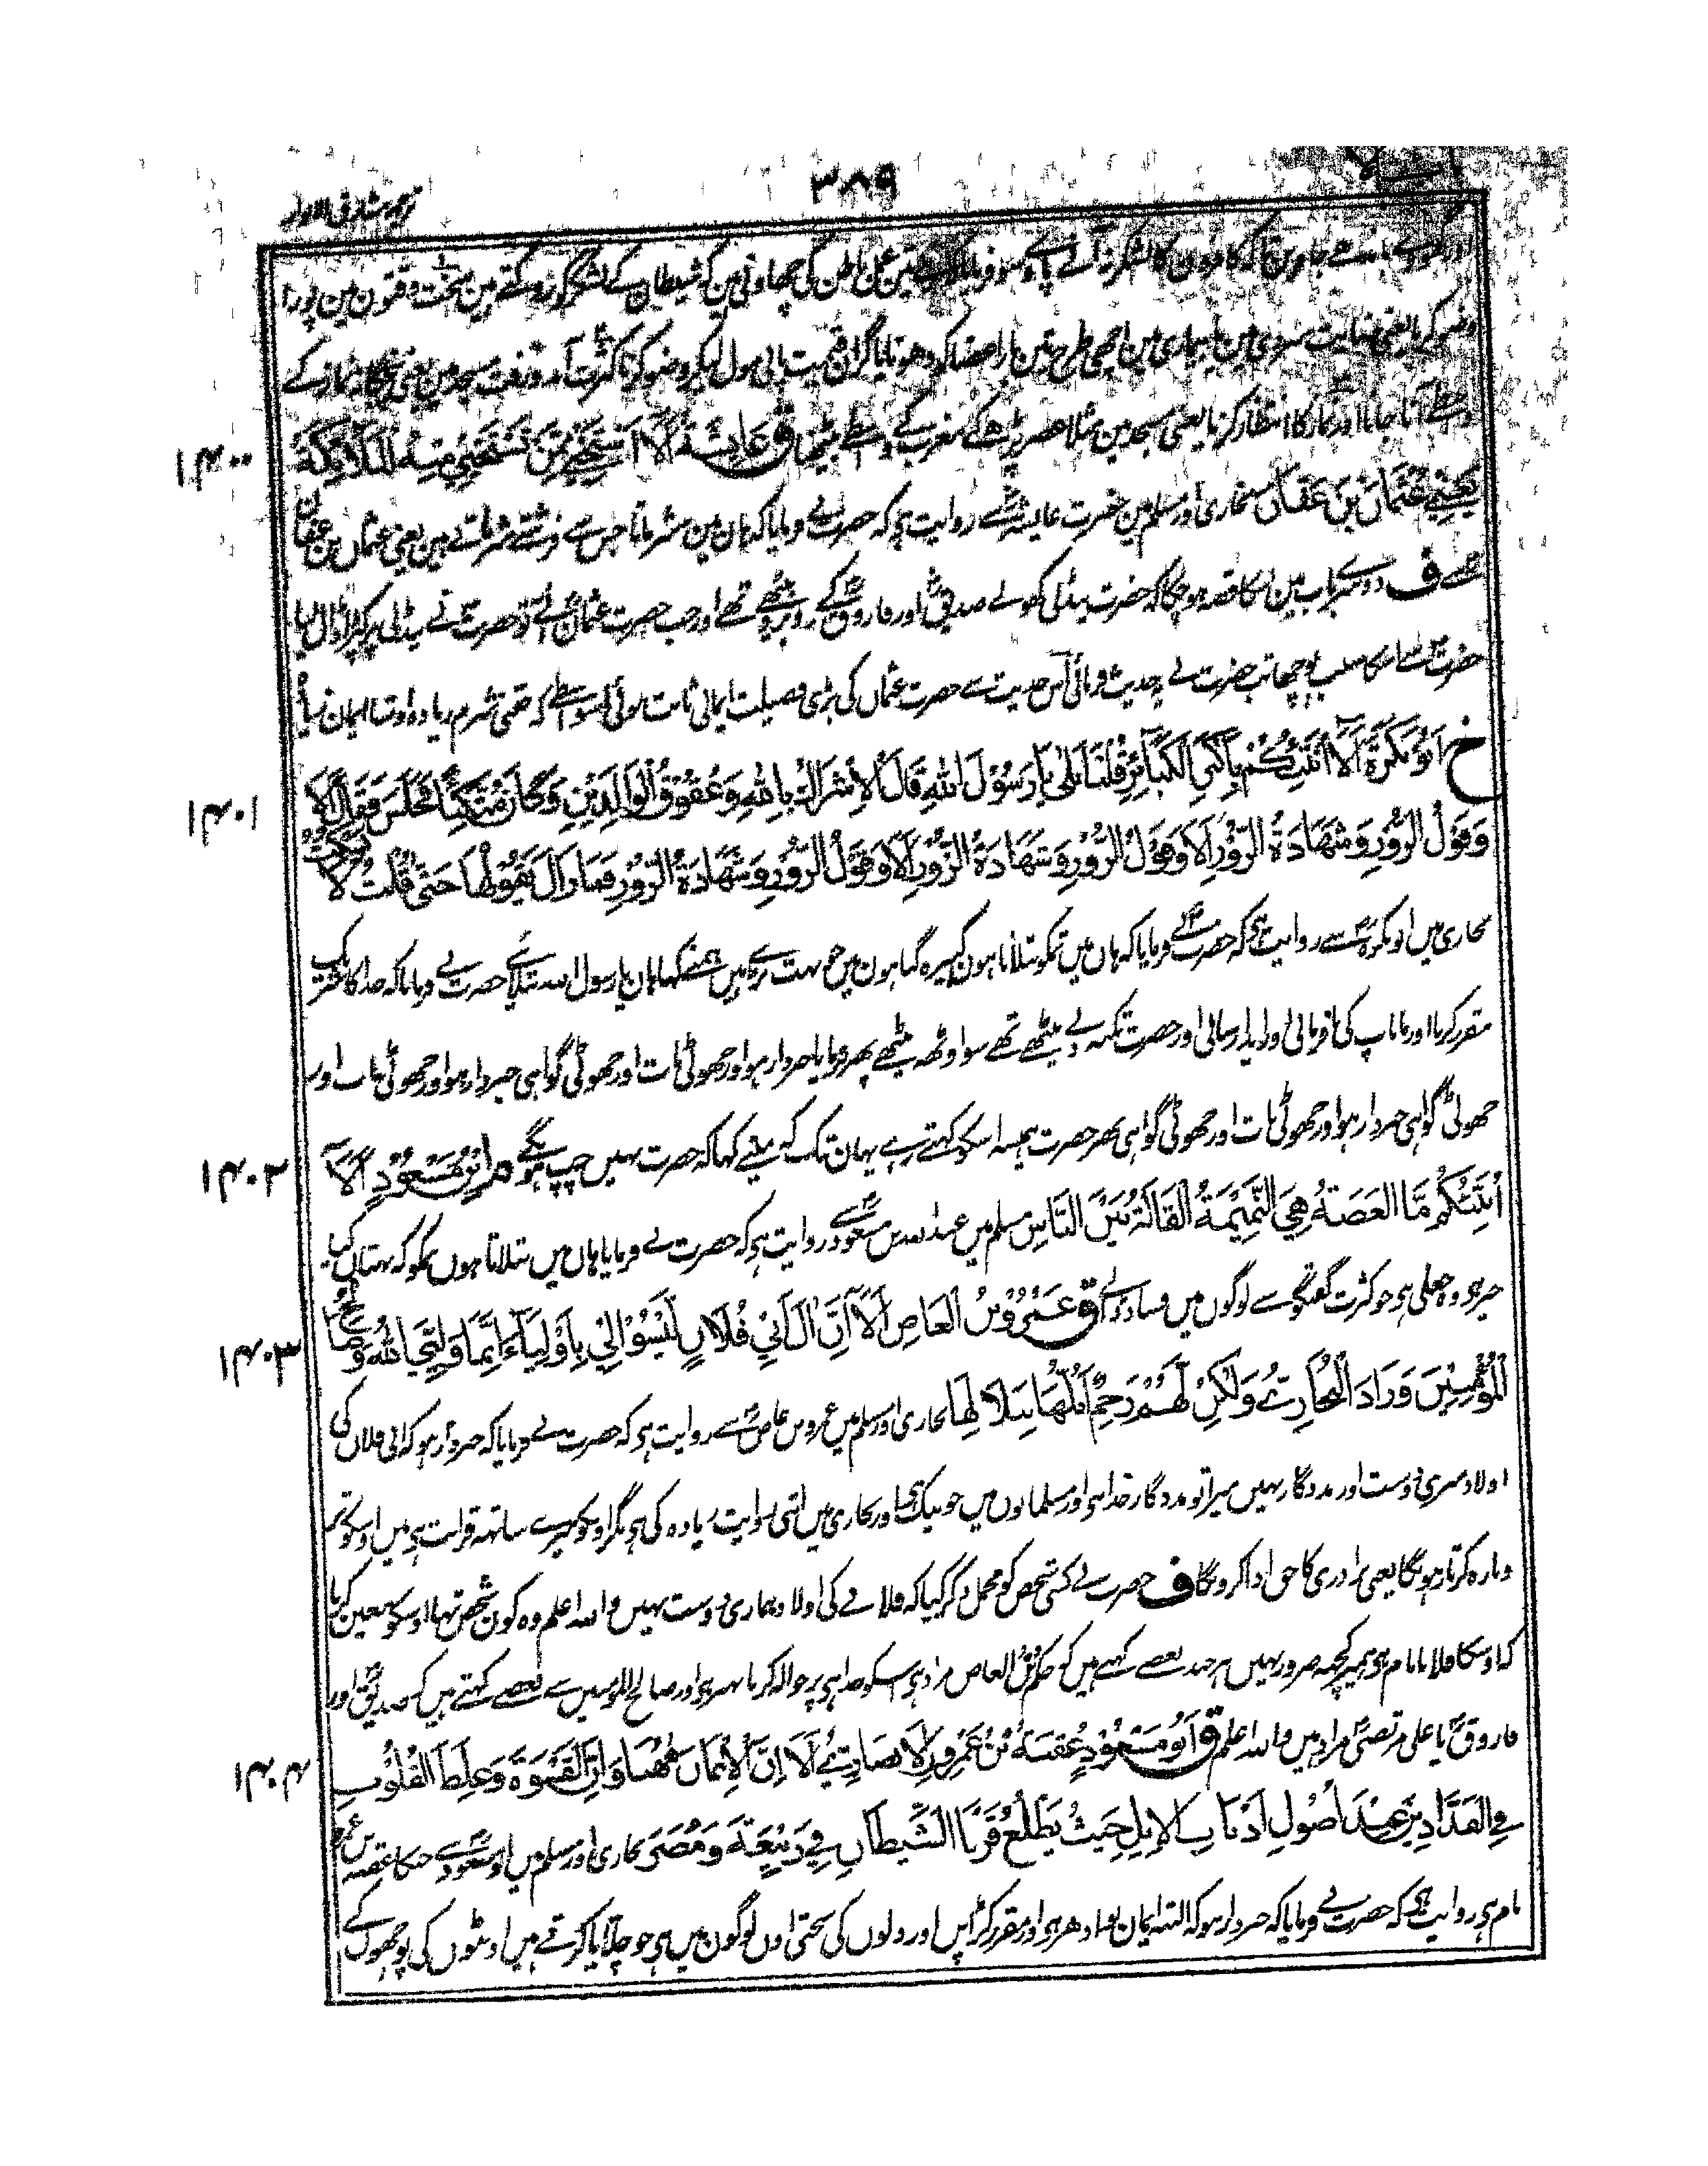 ۳۸۹
ترجمہ مشارق الانوار
عمل باطن کی چھاونی ہین کہ شیطان کے لشکر کو روکتے ہین سخت وقتون مین پورا
وضو کرنا یعنی نہایت سردی مین یا بیماری مین اچھی طرح تین بار اعضا کو دھونا یا گران قیمت پانی مول لیکر وضو کرنا کثرت آمد و رفت مسجد مین یعنی پنجگانہ نماز کے
واسطے آنا جانا اور نماز کا انتظار کرنا یعنی مسجد مین مثلا عصر پڑھ کے مغرب کے واسطے بیٹھنا ق عَائِشَةُ اَلَا اَسْتَحْيِيْ مِمَّنْ تَسْتَحْيِيْ مِنْهُ الْمَلَائِكَةُ
۱۴۰۰
يَعْنِيْ عُثْمَانَ بْنَ عَفَّانَ بخاری اور مسلم مین حضرت عایشہ سے روایت ہی کہ حضرت نے فرمایا کہ ہان مین شرماتا جس سے فرشتے شرماتے ہین یعنی عثمان بن عفان
سے ف دوسرے باب مین اسکا قصہ ہو چکا کہ حضرت پنڈلی کھولے صدیق اور فاروق کے روبرو بیٹھے تھے اور جب حضرت عثمان آئے تو حضرت نے پنڈلی پر کپڑا ڈال لیا
حضرت سے اسکا سبب پوچھا تب حضرت نے یہ حدیث فرمائی اس حدیث سے حضرت عثمان کی بڑی فضیلت ایمانی ثابت ہوئی اسواسطے کہ جتنی شرم زیادہ اوتنا ایمان زیادہ
خ اَبُوْ بَكْرَةَ اَلَا اُنَبِّئُكُمْ بِاَكْبَرِ الْكَبَآئِرِ قُلْنَا بَلٰى يَا رَسُوْلَ اللهِ قَالَ الْاِشْرَاكُ بِاللهِ وَعُقُوْقُ الْوَالِدَيْنِ وَكَانَ مُتَّكِئًا فَجَلَسَ فَقَالَ اَلَا
۱۴۰۱
وَقَوْلُ الزُّوْرِ وَشَهَادَةُ الزُّوْرِ اَلَا وَقَوْلُ الزُّوْرِ وَشَهَادَةُ الزُّوْرِ اَلَا وَقَوْلُ الزُّوْرِ وَشَهَادَةُ الزُّوْرِ فَمَا زَالَ يَقُوْلُهَا حَتّٰى قُلْتُ لَا يَسْكُتُ
بخاری میں ابو بکرہ سے روایت ہی کہ حضرت نے فرمایا کہ ہان میں تمکو بتلاتا ہون کبیرہ گناہون میں جو بہت بڑے ہیں ہمنے کہا ہان یا رسول اللہ بتلائے حضرت نے فرمایا کہ خدا کا شریک
مقرر کرنا اور ما باپ کی نافرمانی اور ایذا رسانی اور حضرت تکیہ دیے بیٹھے تھے سو اوٹھہ بیٹھے پھر فرمایا خبردار ہو اور جھوٹی بات اور جھوٹی گواہی خبردار ہو اور جھوٹی بات اور
جھوٹی گواہی خبردار ہو اور جھوٹی بات اور جھوٹی گواہی پھر حضرت ہمیشہ اسکو کہتے رہے یہان تک کہ مینے کہا کہ حضرت نہیں چپ ہونگے م ابْنُ مَسْعُوْدٍ اَلَا
۱۴۰۲
اُنَبِّئُكُمْ مَّا الْعَضَهُ هِيَ النَّمِيْمَةُ الْقَالَةُ بَيْنَ النَّاسِ مسلم میں عبد اللہ بن مسعود سے روایت ہی کہ حضرت نے فرمایا ہاں میں بتلاتا ہوں تمکو کہ بہتان کیا
چیز ہی وہ چغلی ہی جو کثرت گفتگو سے لوگوں میں فساد ڈالے ق عَمْرُو بْنُ الْعَاصِ اَلَا اِنَّ اٰلَ اَبِيْ فُلَانٍ لَيْسُوْا لِيْ بِاَوْلِيَآءَ اِنَّمَا وَلِيِّيَ اللهُ وَصَالِحُ
۱۴۰۳
الْمُؤْمِنِيْنَ وَزَادَ الْبُخَارِيُّ وَلٰكِنْ لَّهُمْ رَحِمٌ اَبُلُّهَا بِبَلَالِهَا بخاری اور مسلم میں عمرو بن عاص سے روایت ہی کہ حضرت نے فرمایا کہ خبردار ہو کہ ابی فلاں کی
اولاد میری دوست اور مددگار نہیں میرا تو مددگار خدا ہی اور مسلمانوں میں جو نیک ہی اور بخاری میں اتنی روایت زیادہ کی ہی مگر اونکو میرے ساتھہ قرابت ہی میں اوسکو تر
و تازہ کرتا رہونگا یعنی برادری کا حق ادا کرونگا ف حضرت نے کسی شخص کو مجمل ذکر کیا کہ فلانے کی اولاد ہماری دوست نہیں و اللہ اعلم وہ کون شخص تہا اوسکو معین کرنا
کہ اوسکا فلانا نام ہی ہمپر کچھہ ضرور نہیں ہر چند بعضے کہتے ہیں کہ حکم بن العاص مراد ہی اسکو خدا ہی پر حوالہ کرنا بہتر ہی اور صالح المؤمنین سے بعضے کہتے ہیں کہ صدیق اور
فاروق یا علی مرتضی مراد ہیں و اللہ اعلم ق اَبُوْ مَسْعُوْدٍ عُقْبَةُ بْنُ عَمْرِو الْاَنْصَارِيُّ اَلَا اِنَّ الْاِيْمَانَ هٰهُنَا وَاِنَّ الْقَسْوَةَ وَغِلَظَ الْقُلُوْبِ
۱۴۰۴
فِي الْفَدَّادِيْنَ عِنْدَ اُصُوْلِ اَذْنَابِ الْاِبِلِ حَيْثُ يَطْلُعُ قَرْنَا الشَّيْطَانِ فِيْ رَبِيْعَةَ وَمُضَرَ بخاری اور مسلم میں ابو مسعود سے جنکا عقبہ بن عمرو
نام ہی روایت ہی کہ حضرت نے فرمایا کہ خبردار ہو کہ البتہ ایمان تو ادھر ہی اور مقرر کڑاپن اور دلوں کی سختی اون لوگون میں ہی جو چلایا کرتے ہیں اونٹوں کی پونچھوں کے